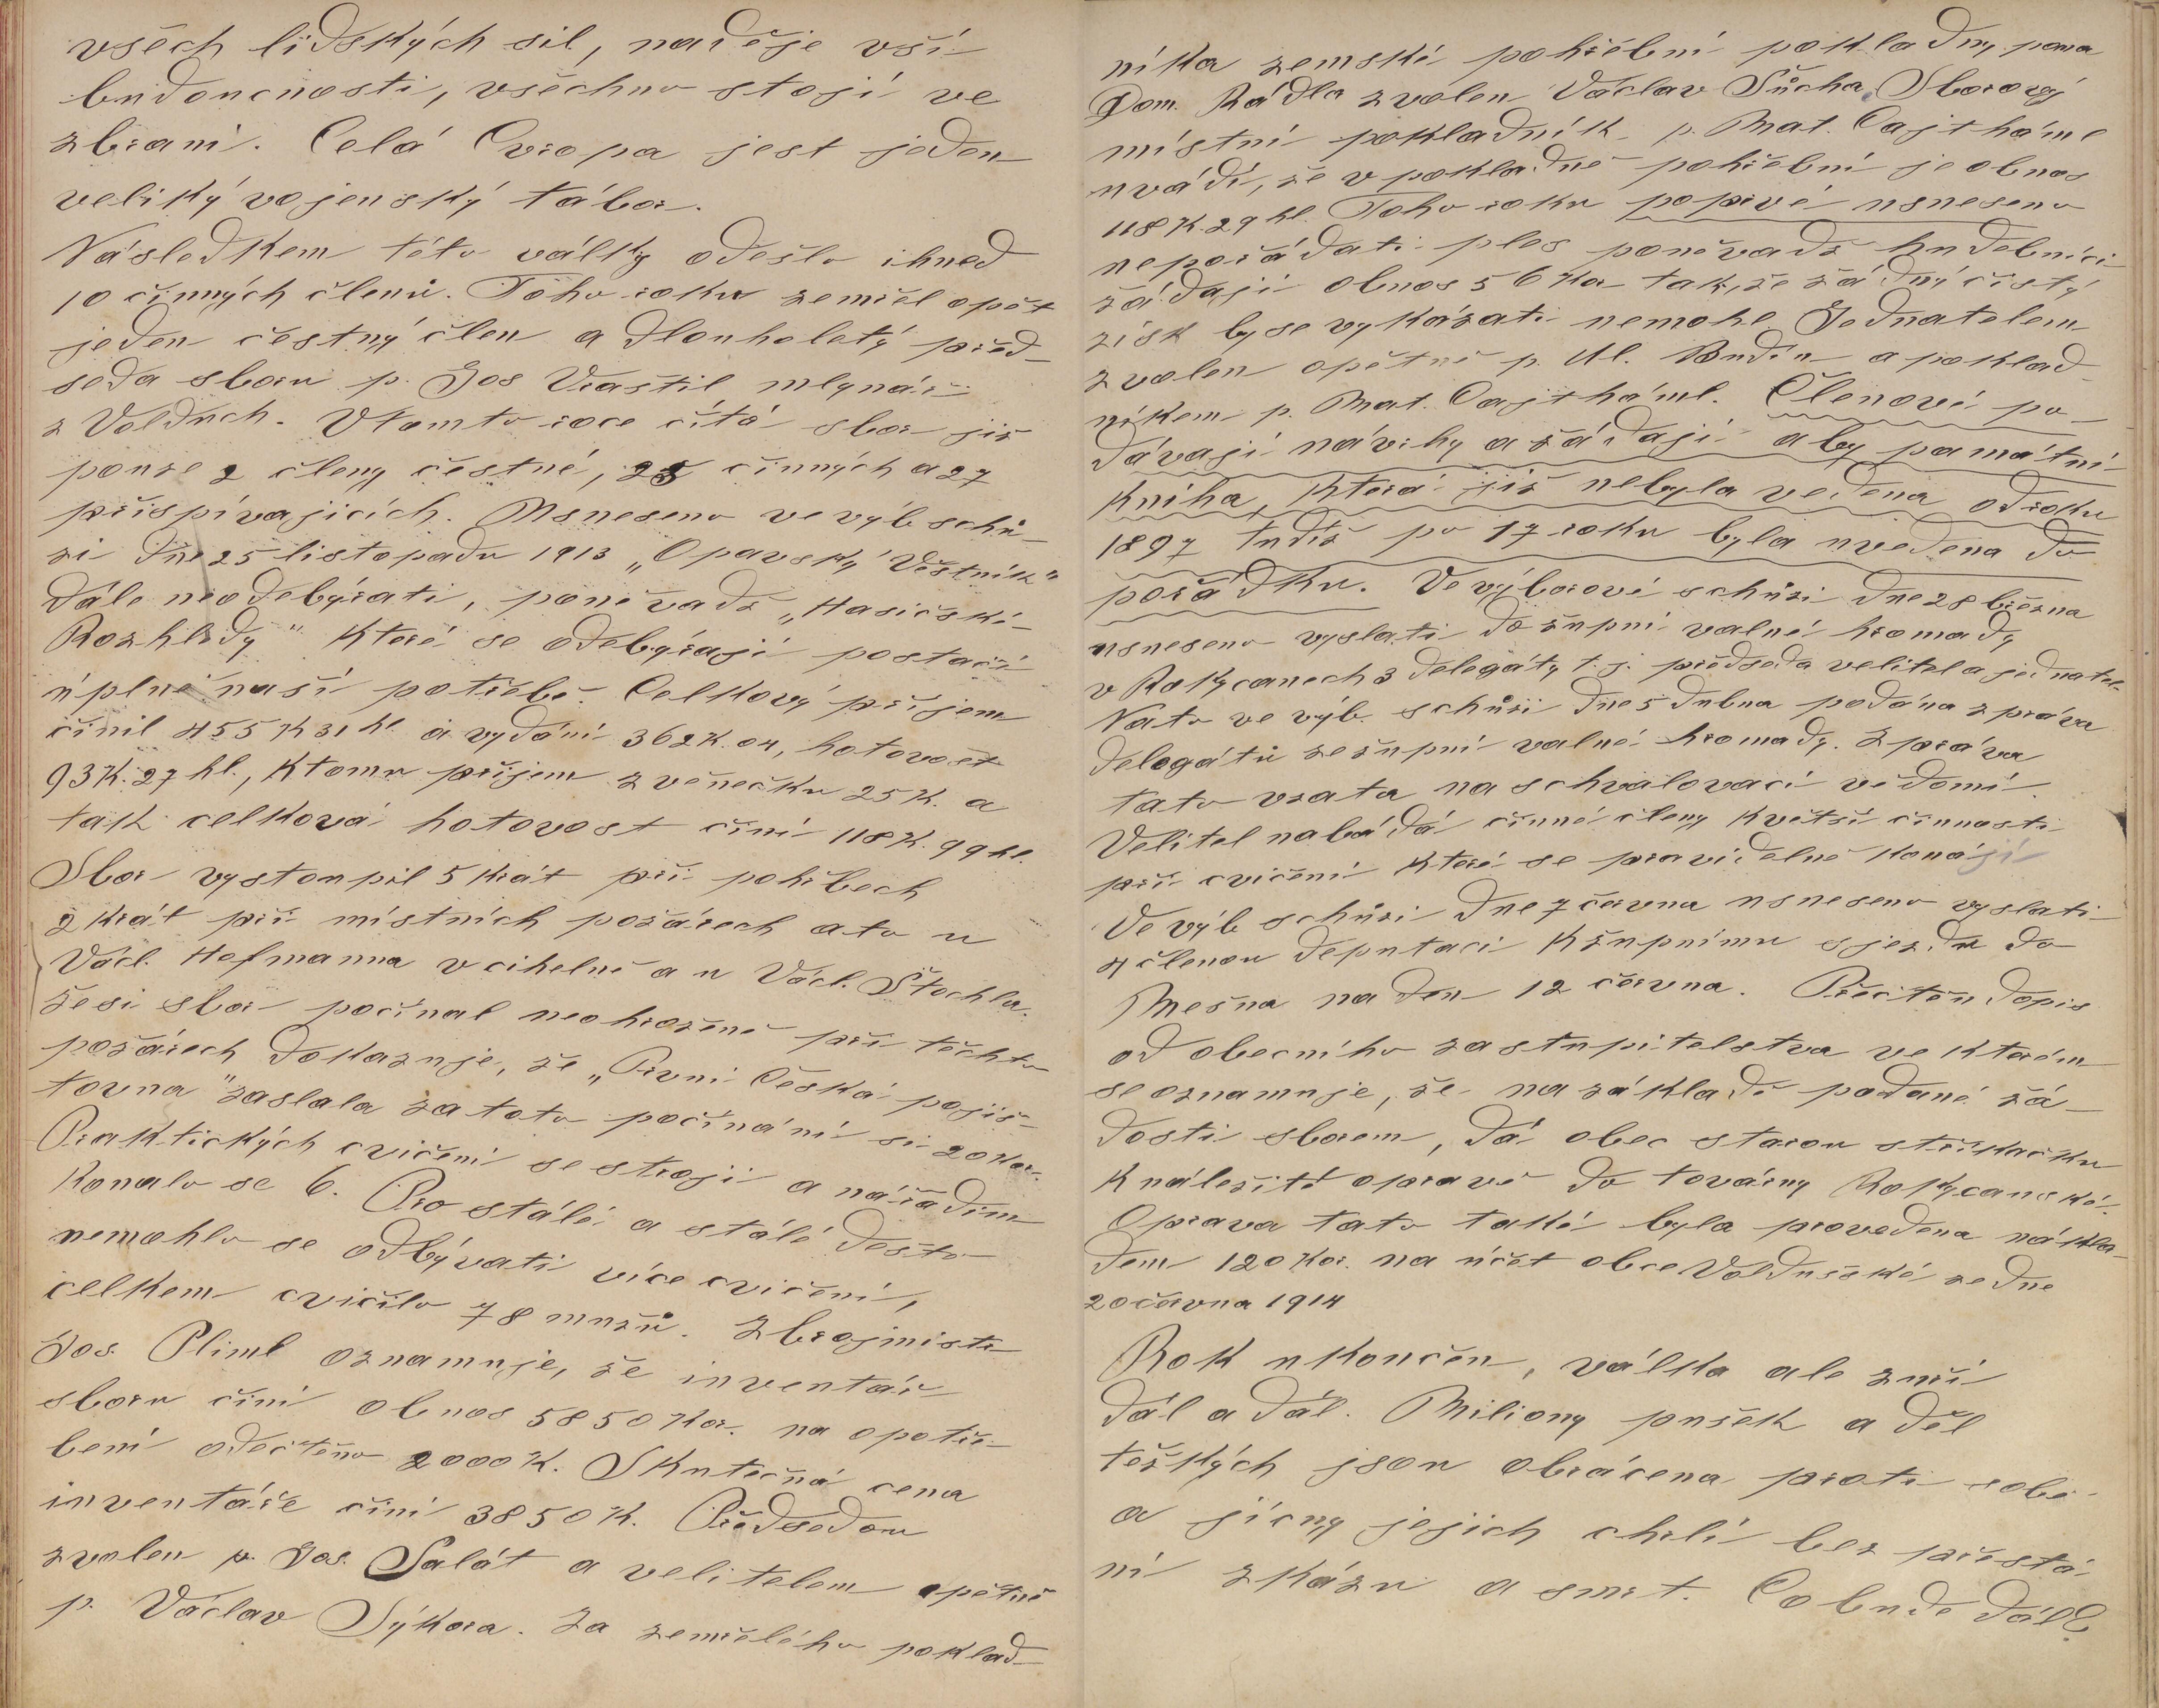 všech lidských sil, naděje vší
budoucnosti, všechno stojí ve
zbrani. Celá Evropa jest jeden
veliký vojenský tábor.
Následkem této války odešlo ihned
10 činných členů. Toho roku zemřel opět
jeden čestný člen a dlouholetý před-
seda sboru p. Jos Vraštil mlynář
z Volduch. V tomto roce čítá sbor již
pouze 2 členy čestné, 25 činných a 27
přispívajících. Usneseno ve výb schů-
zi dne 25 listopadu 1913 „Opavský Věstník"
dále neodebýrati, poněvadž „Hasičské
Rozhledy" které se odebýrají postačí
úplně naší potřebě. Celkový příjem
činil 455 K 31 hl. a vydání 362 K. 04, hotovost
93 K. 27 hl., k tomu příjem z věnečku 25 K. a
tak celková hotovost činí 118 K. 99 hl.
Sbor vystoupil 5 krát při pohřbech
2 krát při místních požárech a to u
Václ. Hofmanna v cihelně a u Václ. Štochla.
že si sbor počínal neohroženě při těchto
požárech dokazuje, že „První Česká pojiš-
tovna" zaslala za toto počínání si 20 Kor.
Praktických cvičení se stroji a nářadím
konalo se 6. Pro stálé a stálé deště
nemohlo se odbývati více cvičení,
celkem cvičilo 78 mužů. Zbrojmistr
Jos. Pliml oznamuje, že inventář
sboru činí obnos 5850 Kor. na opotře-
bení odečteno 2000 K. Skutečná cena
inventáře činí 3850 K. Předsedou
zvolen p. Jos. Salát a velitelem opětně
p. Václav Sýkora. Za zemřelého poklad-
níka zemské pohřební pokladny pana
Dom. Rádla zvolen Václav Sůcha. Sborový
místní pokladník p. Mat. Cajthaml
uvádí, že v pokladně pohřební je obnos
118 K. 29 hl. Toho roku poprvé usneseno
nepořádati ples poněvadž hudebníci
žádají obnos 56 Ka tak, že žádný čistý
zisk by se vykázati nemohl. Jednatelem
zvolen opětně p. Al. Budín a poklad-
níkem p. Mat. Cajthaml. Členové po-
dávají návrhy a žádají aby památní
kniha, která již nebyla vedena od roku
1897 tudíž po 17 roku byla uvedena do
pořádku. Ve výborové schůzi dne 28 března
usneseno vyslati do župní valné hromady
v Rokycanech 3 delegáty t. j. předseda velitel a jednatel.
Na to ve výb. schůzi dne 5 dubna podána zpráva
delegátů ze župní valné hromady. Zpráva
tato vzata na schvalovací vědomí.
Velitel nabádá činné členy k větší činnosti
při cvičení které se pravidelně konají
Ve výb schůzi dne 7 června usneseno vyslati
4 členou deputaci k župnímu sjezdu do
Mešna na den 12 června. Přečtěn dopis
od obecního zastupitelstva ve kterém
se oznamuje, že na základě podané žá-
dosti sborem, dá obec starou stříkačku
k náležité opravě do továrny Rokycanské.
Oprava tato také byla provedena nákla-
dem 120 Kor. na účet obce Voldušské ze dne
20 června 1914
Rok ukončen, válka ale zuří
dál a dál. Miliony pušek a děl
těžkých jsou obrácena proti sobě
a jícny jejich chrlí bez přestá-
ní zkázu a smrt. Co bude dál?